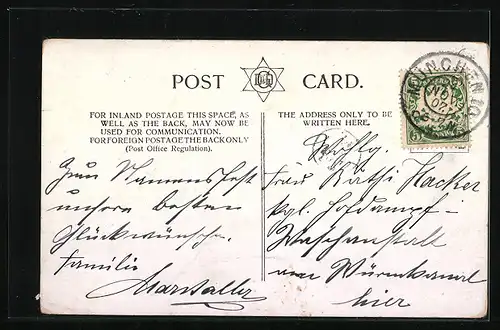 POST CARD.
FOR INLAND POSTAGE THIS SPACE, AS
WELL AS THE BACK, MAY NOW BE
USED FOR COMMUNICATION.
FOR FOREIGN POSTAGE THE BACK ONLY
(Post Office Regulation).
THE ADDRESS ONLY TO BE
WRITTEN HERE.
MÜNCHEN
5
Zum Namensfest
unsere besten
Glückwünsche.
Familie
Marstaller
Frau Käthi Hacker
kgl. Hofdampf-
Waschanstalt
am Würmkanal
hier